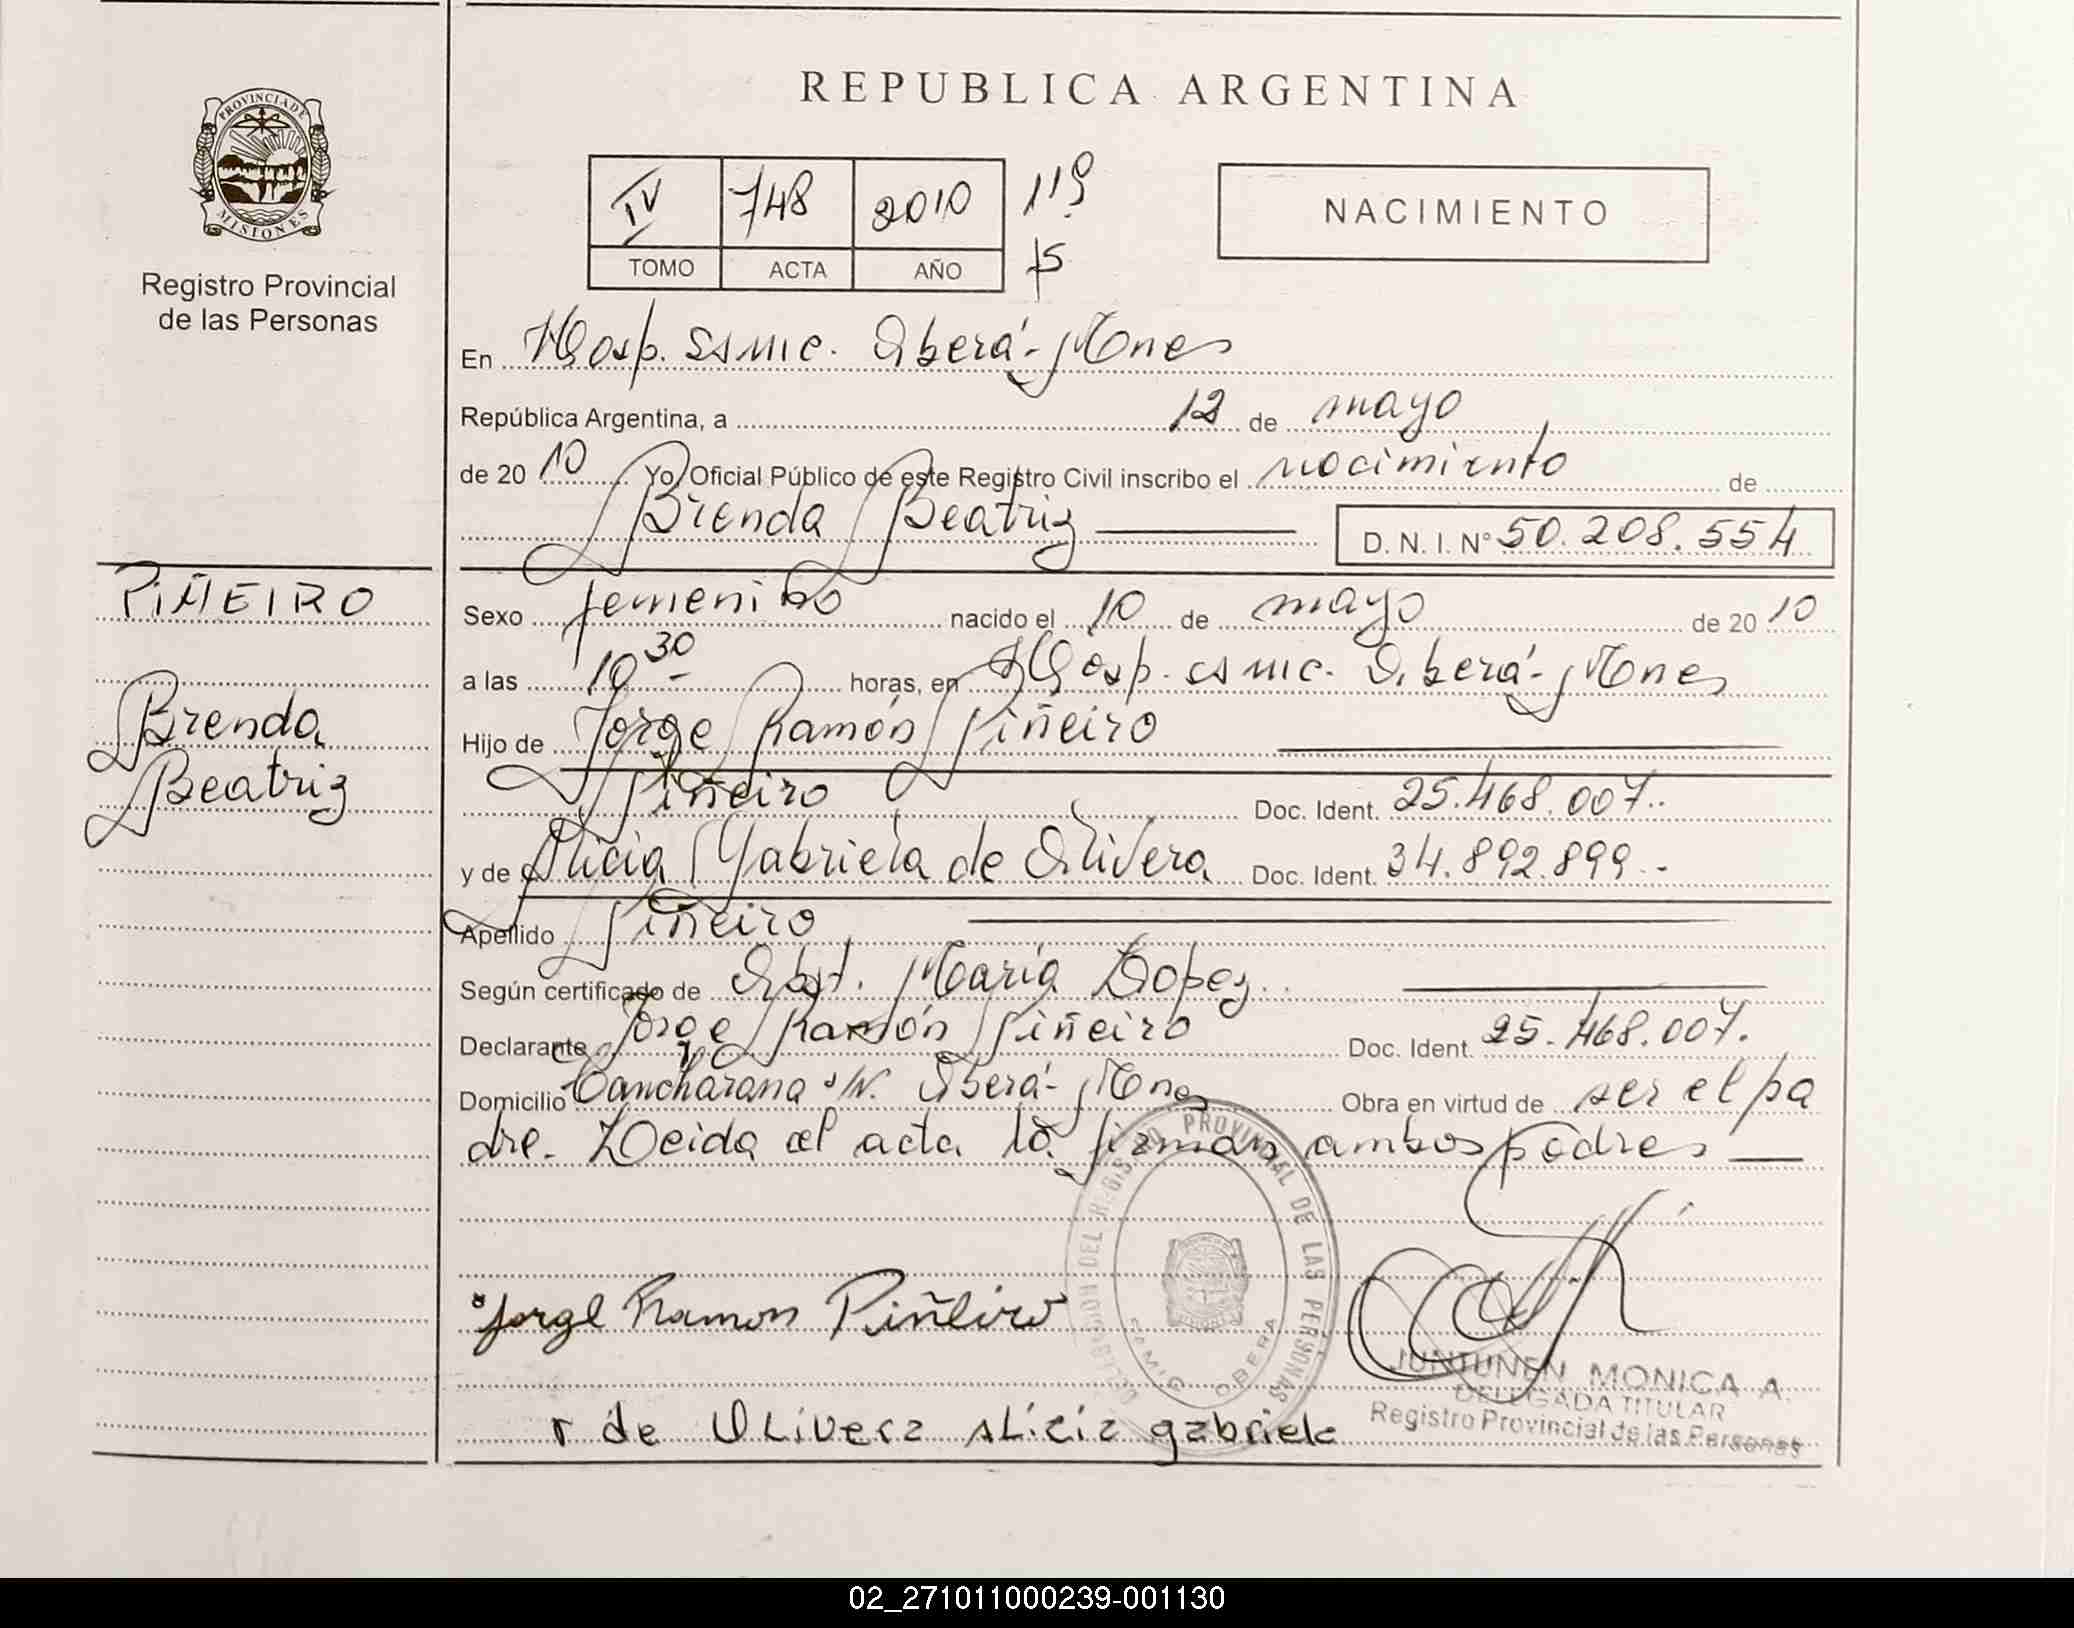 REPUBLICA ARGENTINA
PROVINCIA DE MISIONES
Registro Provincial
de las Personas
IV 748 2010 119
TOMO ACTA AÑO
NACIMIENTO
En Hosp. ssmic. Oberá- Mnes
República Argentina, a 12 de mayo
de 2010 Yo, Oficial Público de este Registro Civil inscribo el nacimiento de
Brenda Beatriz D. N. I. N° 50.208.554
PIÑEIRO
Brenda
Beatriz
Sexo femenino nacido el 10 de mayo de 2010
a las 10 30 horas, en Hosp. ssmic. Oberá- Mnes
Hijo de Jorge Ramón Piñeiro
Piñeiro Doc. Ident. 25.468.007.
y de Alicia Gabriela de Olivera Doc. Ident. 34.892.899.-
Apellido Piñeiro
Según certificado de Obst. María Lopez
Declarante Jorge Ramón Piñeiro Doc. Ident. 25.468.007.
Domicilio Cancharana s/N. Oberá- Mnes Obra en virtud de ser el pa
dre. Leida el acta la firman ambos padres
DELEGACION DEL REGISTRO PROVINCIAL DE LAS PERSONAS
SAMIC OBERA
Jorge Ramon Piñeiro
JUNTUNEN MONICA A.
DELEGADA TITULAR
Registro Provincial de las Personas
de OLiVera ALicia gabriela
02_271011000239-001130